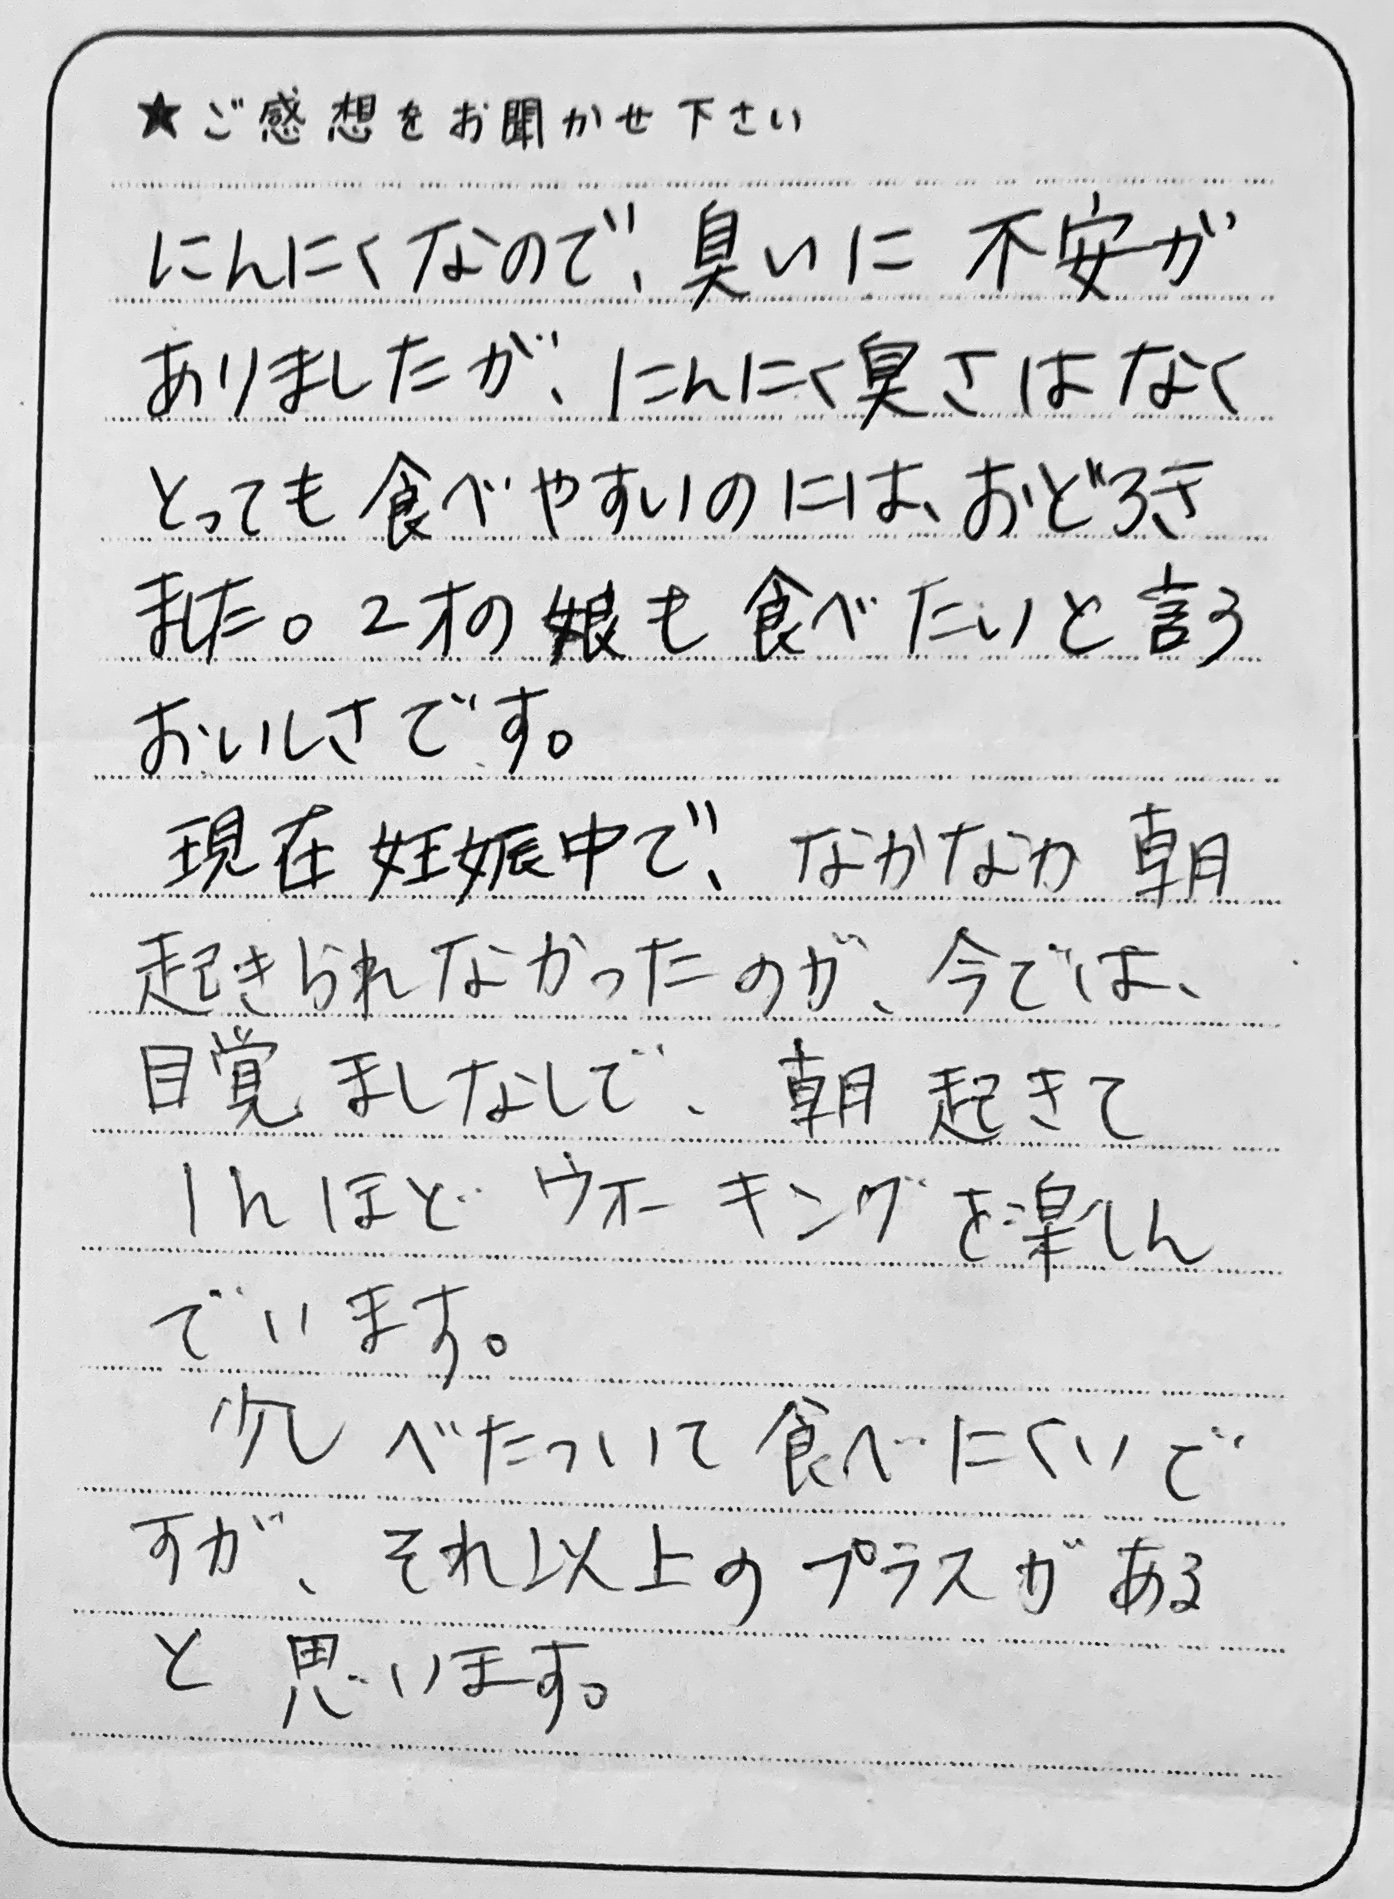 ★ご感想をお聞かせ下さい
にんにくなので、臭いに不安が
ありましたが、にんにく臭さはなく
とっても食べやすいのには、おどろき
ました。2才の娘も食べたいと言う
おいしさです。
現在妊娠中で、なかなか朝
起きられなかったのが、今では、
目覚ましなしで、朝起きて
1hほどウォーキングを楽しん
でいます。
少しべたついて食べにくいで
すが、それ以上のプラスがある
と思います。